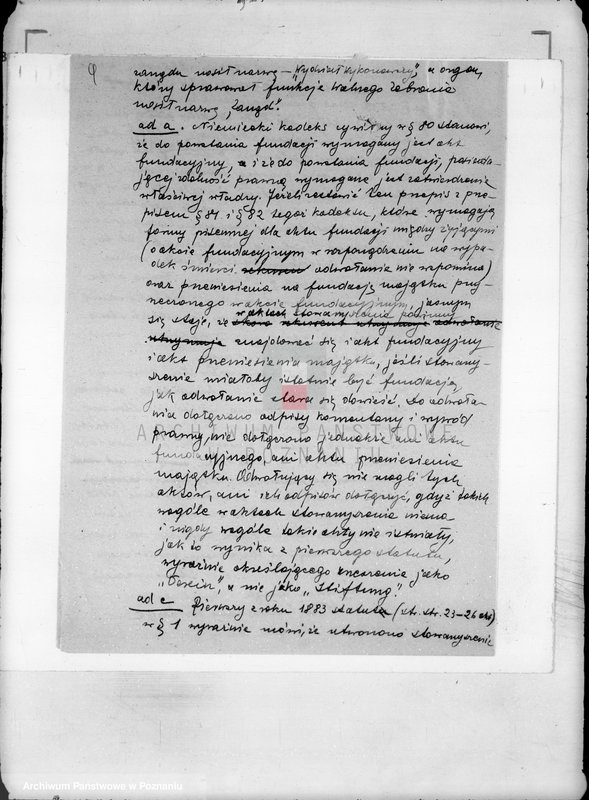 zarządu nosił nazwę – „Wydział Wykonawczy", a organ,
który sprawował funkcje Walnego Zebrania
nosił nazwę „Zarząd".
ad a. Niemiecki kodeks cywilny w § 80 stanowi,
że do powstania fundacji wymagany jest akt
fundacyjny, a i że do powstania fundacji, posiada-
jącej zdolność prawną wymagane jest zatwierdzenie
właściwej władzy. Jeżeli zestawić ten przepis z prze-
pisem § 81 i § 82 tegoż kodeksu, które wymagają
formy pisemnej dla aktu fundacji między żyjącymi
(o akcie fundacyjnym w rozporządzeniu na wypa-
dek śmierci odwołanie nie wspomina)
oraz przeniesienia na fundację majątku przy-
rzeczonego w akcie fundacyjnym, jasnym
w aktach stowarzyszenia powinny
się staje, że
znajdować się i akt fundacyjny
i akt przeniesienia majątku, jeśli stowarzy-
szenie miałoby istotnie być fundacją
jak odwołanie stara się dowieść. Do odwoła-
nia dołączono odpisy komentarzy i wywód
prawny, nie dołączono jednakże ani aktu
fundacyjnego, ani aktu przeniesienia
majątku. Odwołujący się nie mogli tych
aktów, ani ich odpisów dołączyć, gdyż takich
wogóle w aktach stowarzyszenia niema
i nigdy wogóle takie akty nie istniały,
jak to wynika z pierwszego statutu,
wyraźnie określającego zrzeszenie jako
„Verein", a nie jako „Stiftung".
ad c Pierwszy z roku 1883 statut (str. 23–26 akt)
w § 1 wyraźnie mówi, że utworzono stowarzyszenie
ARCHIWUM PAŃSTWOWE
W POZNANIU
Archiwum Państwowe w Poznaniu